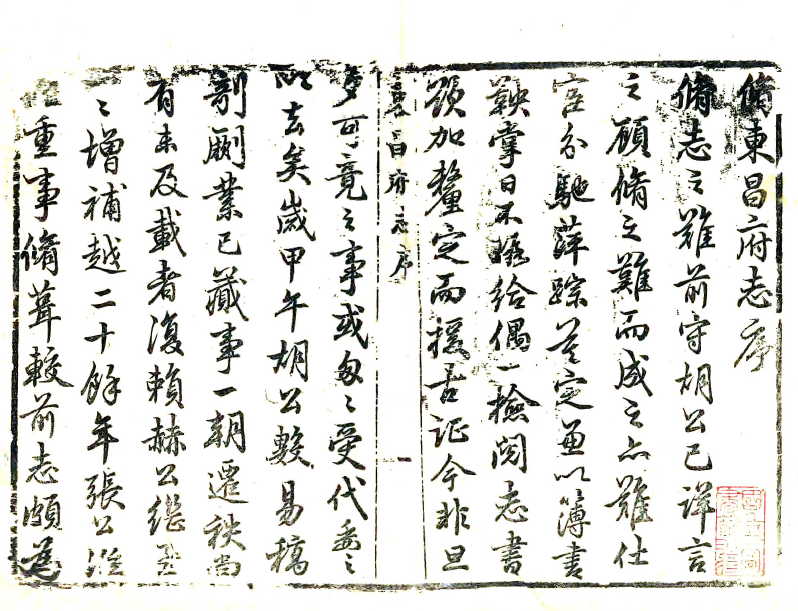 脩東昌府志序
脩志之難前守胡公已詳言
之顧脩之難而成之亦難仕
宦分馳萍踪莫定兼以簿書
鞅掌日不暇給偶一檢閱志書
須加釐定而援古証今非旦
東昌府志序
一
夕可竟之事或匆〻受代委之
以去矣歲甲午胡公數易稿
剞劂業已蕆事一朝遷秩尚
有未及載者復賴赫公繼
之增補越二十餘年張公
重事脩葺較前志頗為